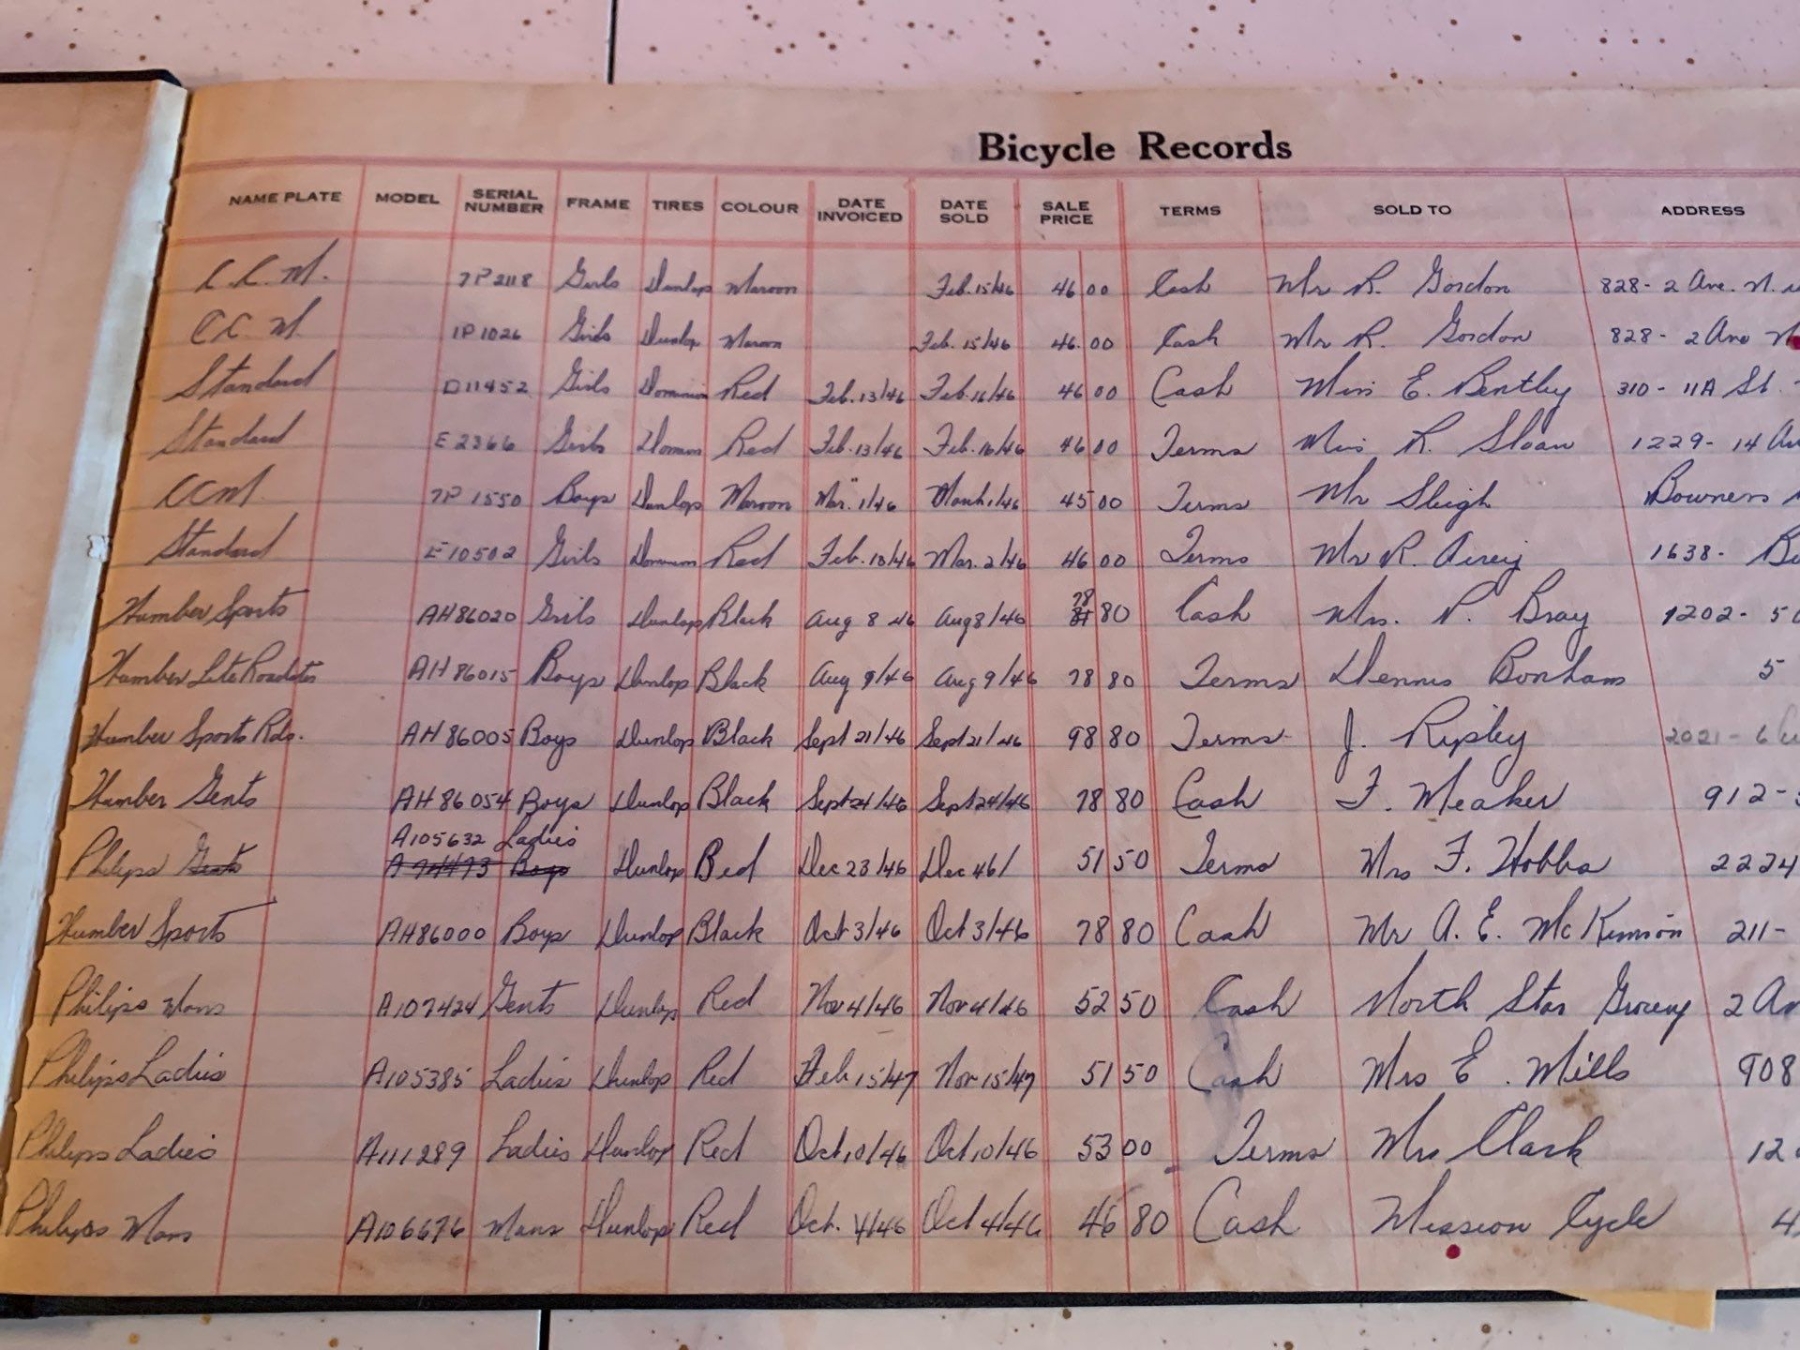 Bicycle Records
NAME PLATE MODEL SERIAL NUMBER FRAME TIRES COLOUR DATE INVOICED DATE SOLD SALE PRICE TERMS SOLD TO ADDRESS
C.C.M. 7P2118 Girls Dunlop Maroon Feb.15/46 46 00 Cash Mr R. Gordon 828-2 Ave. N.
C.C.M. 1P1026 Girls Dunlop Maroon Feb.15/46 46.00 Cash Mr R. Gordon 828-2 Ave N
Standard D11452 Girls Dominion Red Feb.13/46 Feb.16/46 46 00 Cash Miss E. Bentley 310-11A St.
Standard E2366 Girls Domion Red Feb.13/46 Feb.16/46 46 00 Terms Miss R. Sloan 1229-14 Av
CCM. 7P1550 Boys Dunlop Maroon Mar. 1/46 March 1/46 45 00 Terms Mr Sleigh Bowness
Standard E10502 Girls Dominion Red Feb.13/46 Mar.2/46 46 00 Terms Mr R. Airey 1638-
Humber Sports AH86020 Girls Dunlop Black Aug 8 46 Aug 8/46 78 80 Cash Mrs. P. Bray 1202-50
Humber Lite Roadster AH86015 Boys Dunlop Black Aug 9/46 Aug 9/46 78 80 Terms Dennis Bonham 5
Humber Sports Rds. AH86005 Boys Dunlop Black Sept 21/46 Sept 21/46 98 80 Terms J. Ripley 2021-6
Humber Gents AH86054 Boys Dunlop Black Sept 24/46 Sept 24/46 78 80 Cash F. Meaker 912-
A105632 Ladies
Philips Gents A74473 Boys Dunlop Red Dec 23/46 Dec 46/ 51 50 Terms Mrs F. Hobbs 2224
Humber Sports AH86000 Boys Dunlop Black Oct 3/46 Oct 3/46 78 80 Cash Mr A. E. McKinnon 211-
Philips Mans A107424 Gents Dunlop Red Nov 4/46 Nov 4/46 52 50 Cash North Star Grocery 2 Av
Philips Ladies A105385 Ladies Dunlop Red Feb 15/47 Nov 15/47 51 50 Cash Mrs E. Mills 908
Philips Ladies A111289 Ladies Dunlop Red Oct 10/46 Oct 10/46 53 00 Terms Mrs Clark 12
Philips Mans A106676 Mans Dunlop Red Oct. 4/46 Oct 4/46 46 80 Cash Mission Cycle 4